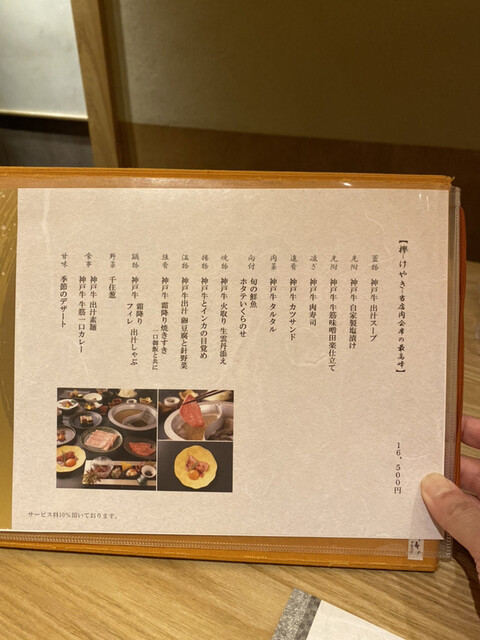 【欅-けやき-当店肉会席の最高峰】
16,500円
蓋物 神戸牛 出汁スープ
先附 神戸牛 自家製塩漬け
先附 神戸牛 牛筋味噌田楽仕立て
凌ぎ 神戸牛 肉寿司
進肴 神戸牛 カツサンド
肉菜 神戸牛 タルタル
向付 旬の鮮魚
ホタテいくらのせ
焼物 神戸牛 火取り 生雲丹添え
揚物 神戸牛とインカの目覚め
温物 神戸牛出汁 卵豆腐と針野菜
強肴 神戸牛 霜降り焼きすき
一口御飯と共に
鍋物 神戸牛 霜降り
フィレ 出汁しゃぶ
野菜 千住葱
食事 神戸牛出汁素麺
神戸牛 牛筋一口カレー
甘味 季節のデザート
サービス料10%頂いております。